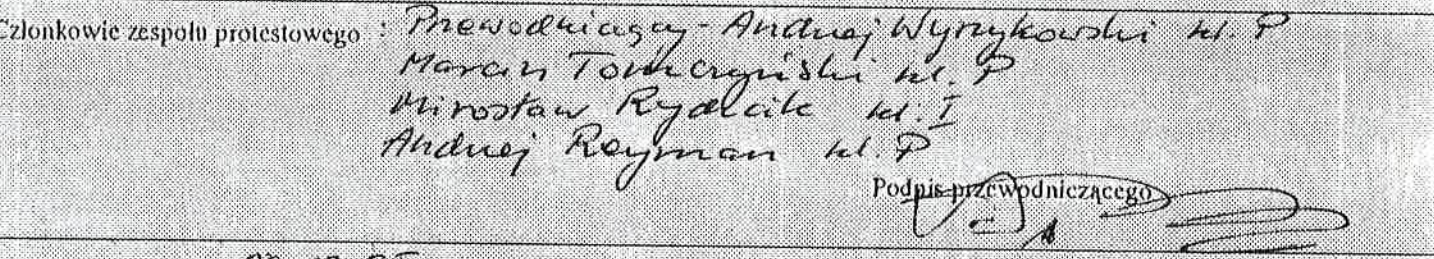 Członkowie zespołu protestowego : Przewodniczący - Andrzej Wyrzykowski kl. P
Marcin Tomczyński kl. P
Mirosław Rydlcik kl. I
Andrzej Reyman kl. P
Podpis przewodniczącego